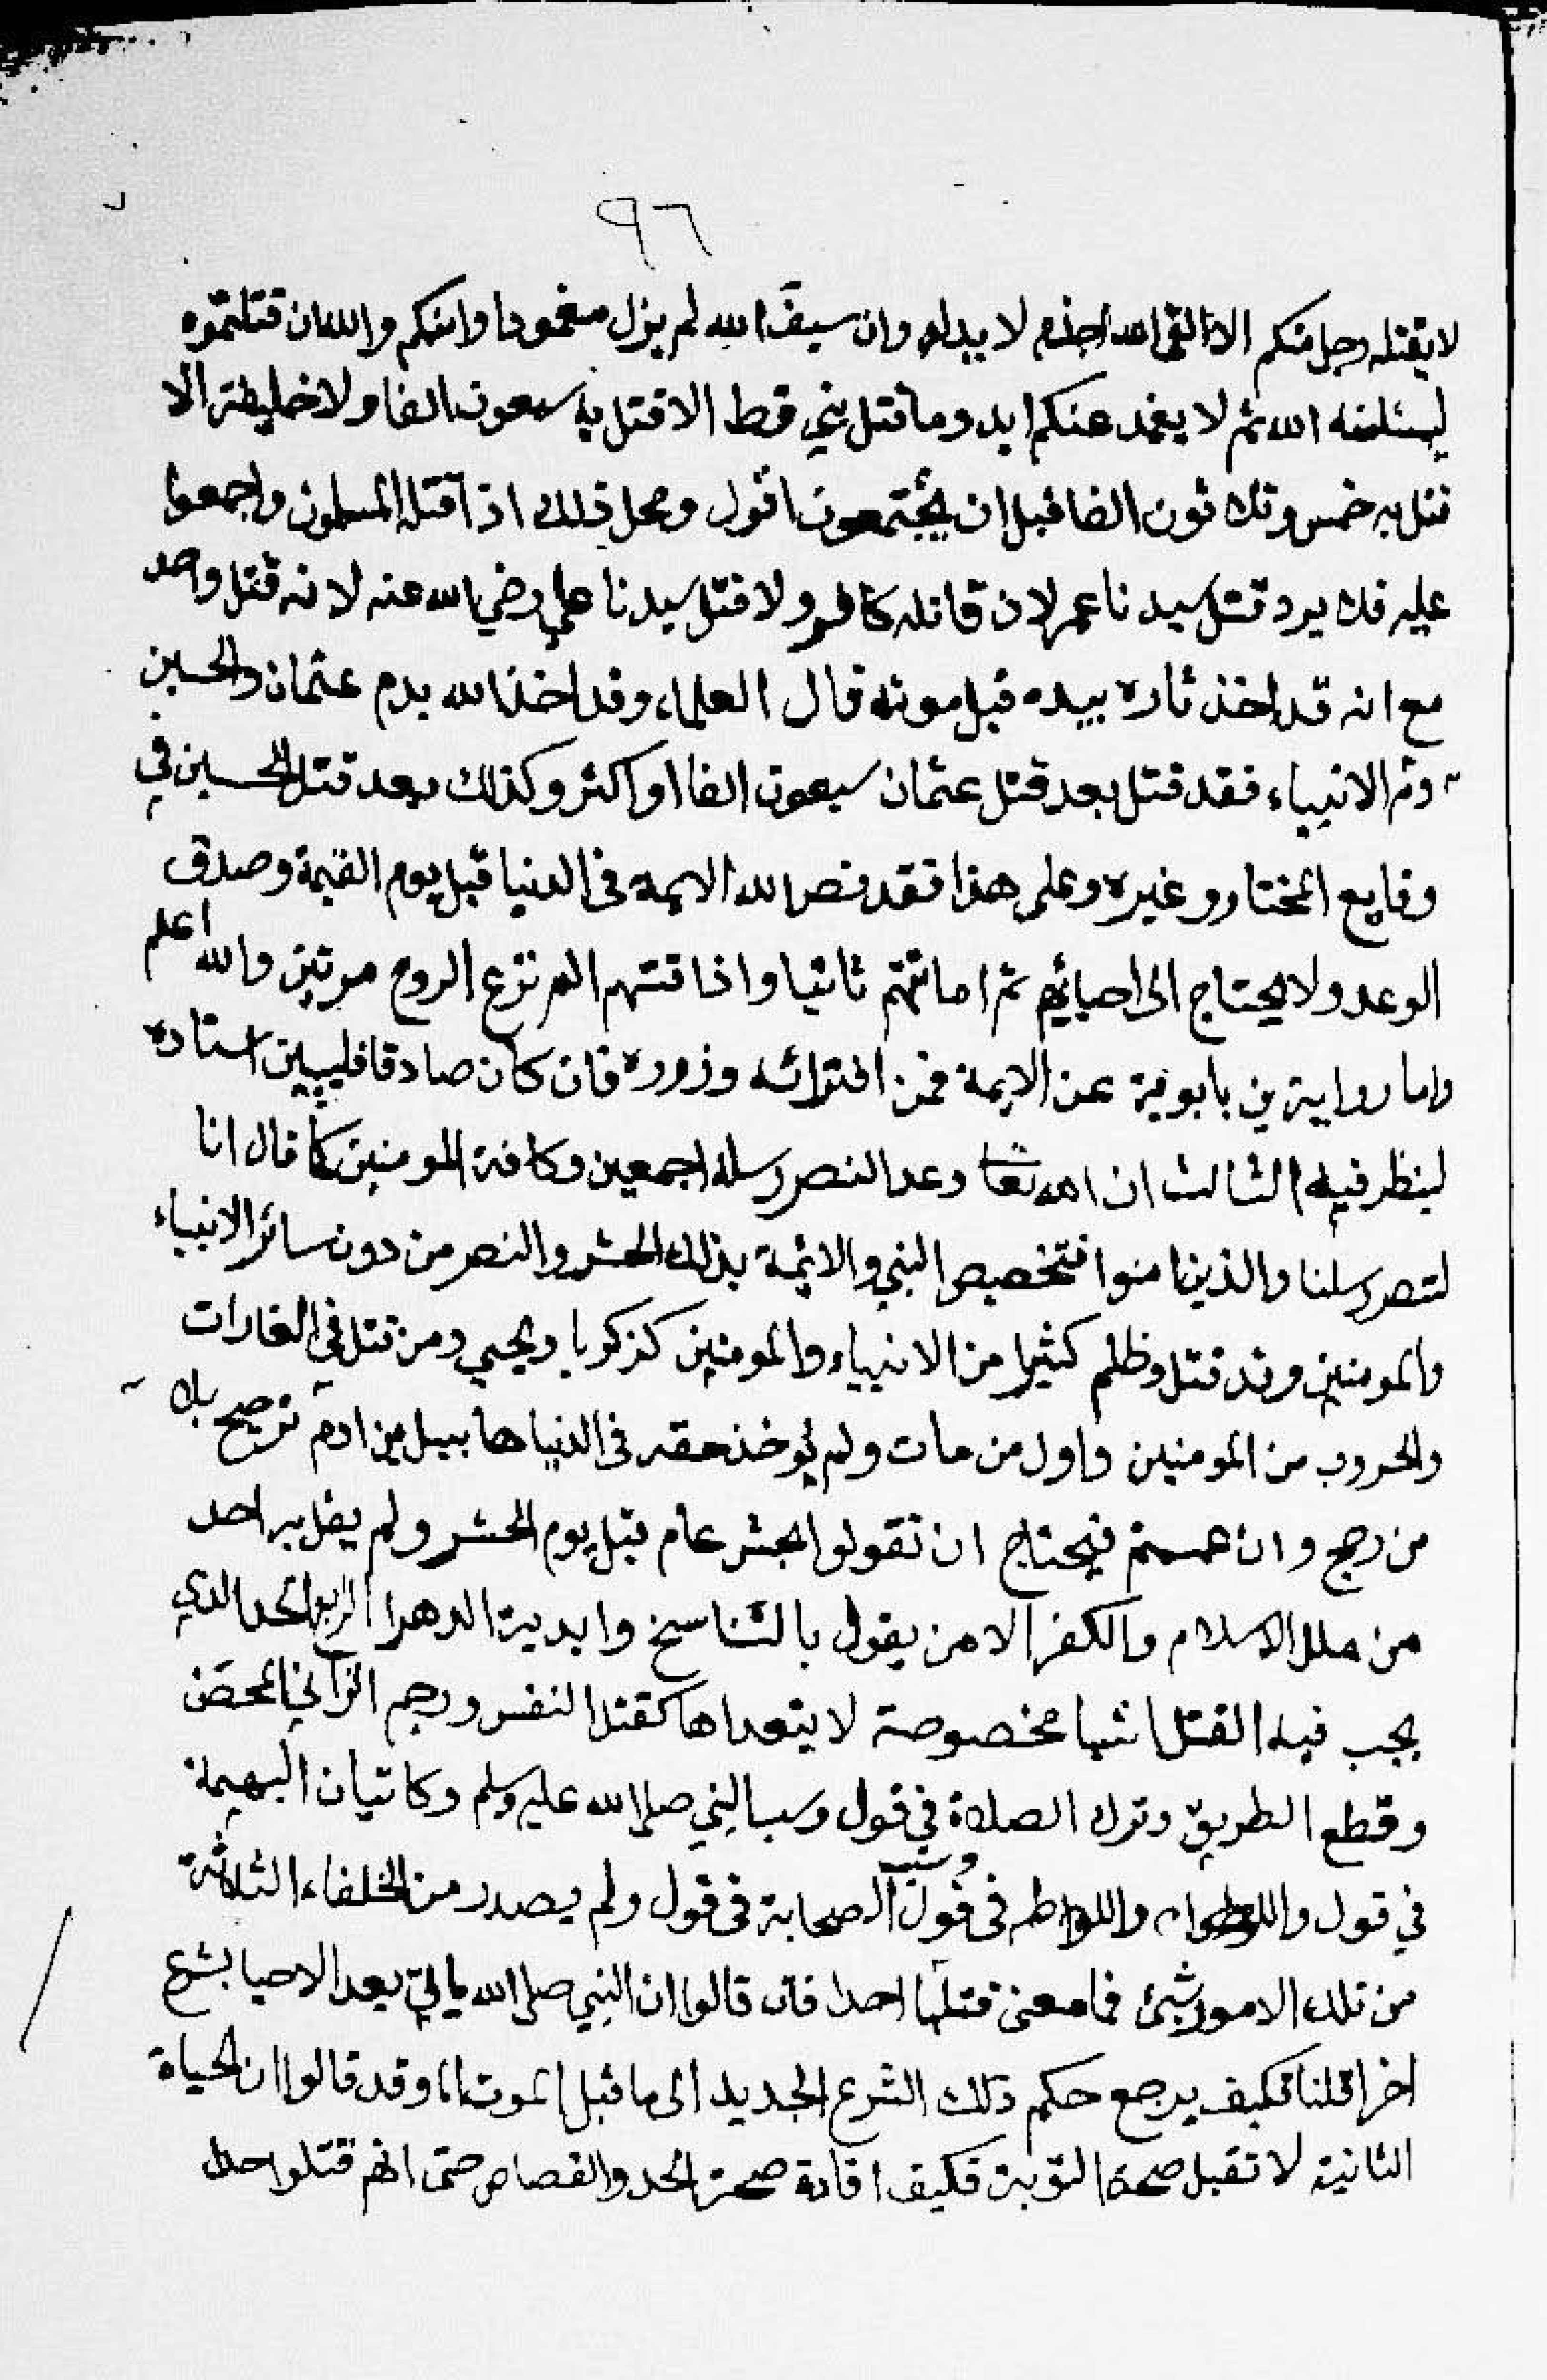 ٩٦
لا يقتله رجل منكم الا لقي الله اجذم لا يد له وان سيف الله لم يزل مغمودا وانكم والله ان قتلتموه
ليسلنه الله ثم لا يغمد عنكم ابد وما قتل نبي قط الا قتل به سبعون الفا ولا خليفة الا
قتل به خمس وثلاثون الفا قبل ان يجتمعون اقول ومحل ذلك اذا قتله المسلمون واجمعوا
عليه فلا يرد قتل سيدنا عمر لان قاتله كافر ولا قتل سيدنا علي رضي الله عنه لانه قتل واحد
مع انه قد اخذ ثاره بيده قبل موته قال العلماء وقد اخذ الله بدم عثمان والحسين
ودم الانبياء فقد قتل بعد قتل عثمان سبعون الفا او اكثر وكذلك بعد قتل الحسين في
وقايع المختار وغيره وعلى هذا فقد نصر الله الايمة في الدنيا قبل يوم القيمة وصدق
الوعد ولا يحتاج الى احيائهم ثم اماتتهم ثانيا واذاقتهم الم نزع الروح مرتين والله اعلم
واما رواية بن بابوية عن الايمة فمن افترائه وزوره فان كان صادقا فليبين اسناده
لينظر فيه الثالث ان الله تعا وعد النصر رسله اجمعين وكافة المومنين كما قال انا
لنصر رسلنا والذين امنوا فتخصيص النبي والائمة بذلك الحشر والنصر من دون سائر الانبياء
والمومنين وقد قتل وظلم كثيرا من الانبياء والمومنين كزكريا ويحيى ومن قتل في الغارات
والحروب من المومنين واول من مات ولم يوخذ حقه في الدنيا هابيل بن ادم ترجيح بلا
من رجح وان عممتم فيحتاج ان تقولوا بحشر عام قبل يوم الحشر ولم يقل به احد
من ملل الاسلام والكفر الا من يقول بالتناسخ وابدية الدهر الرابع الحد الذي
يجب فيه القتل اشيا مخصوصة لا يتعداها كقتل النفس ورجم الزاني المحصن
وقطع الطريق وترك الصلاة في قول وسب النبي صلى الله عليه وسلم وكاتيان البهيمة
في قول واللواط في قول وسب الصحابة في قول ولم يصدر من الخلفاء الثلاثة
من تلك الامور شئ فما معنى قتلهما احدا فان قالوا ان النبي صلى الله ياتي بعد الاحيا بشرع
اخر قلنا فكيف يرجع حكم ذلك الشرع الجديد الى ما قبل الموت وقد قالوا ان الحياة
الثانية لا تقبل صحة التوبة فكيف افادة صحة الحد والقصاص حتى انهم قتلوا حدا